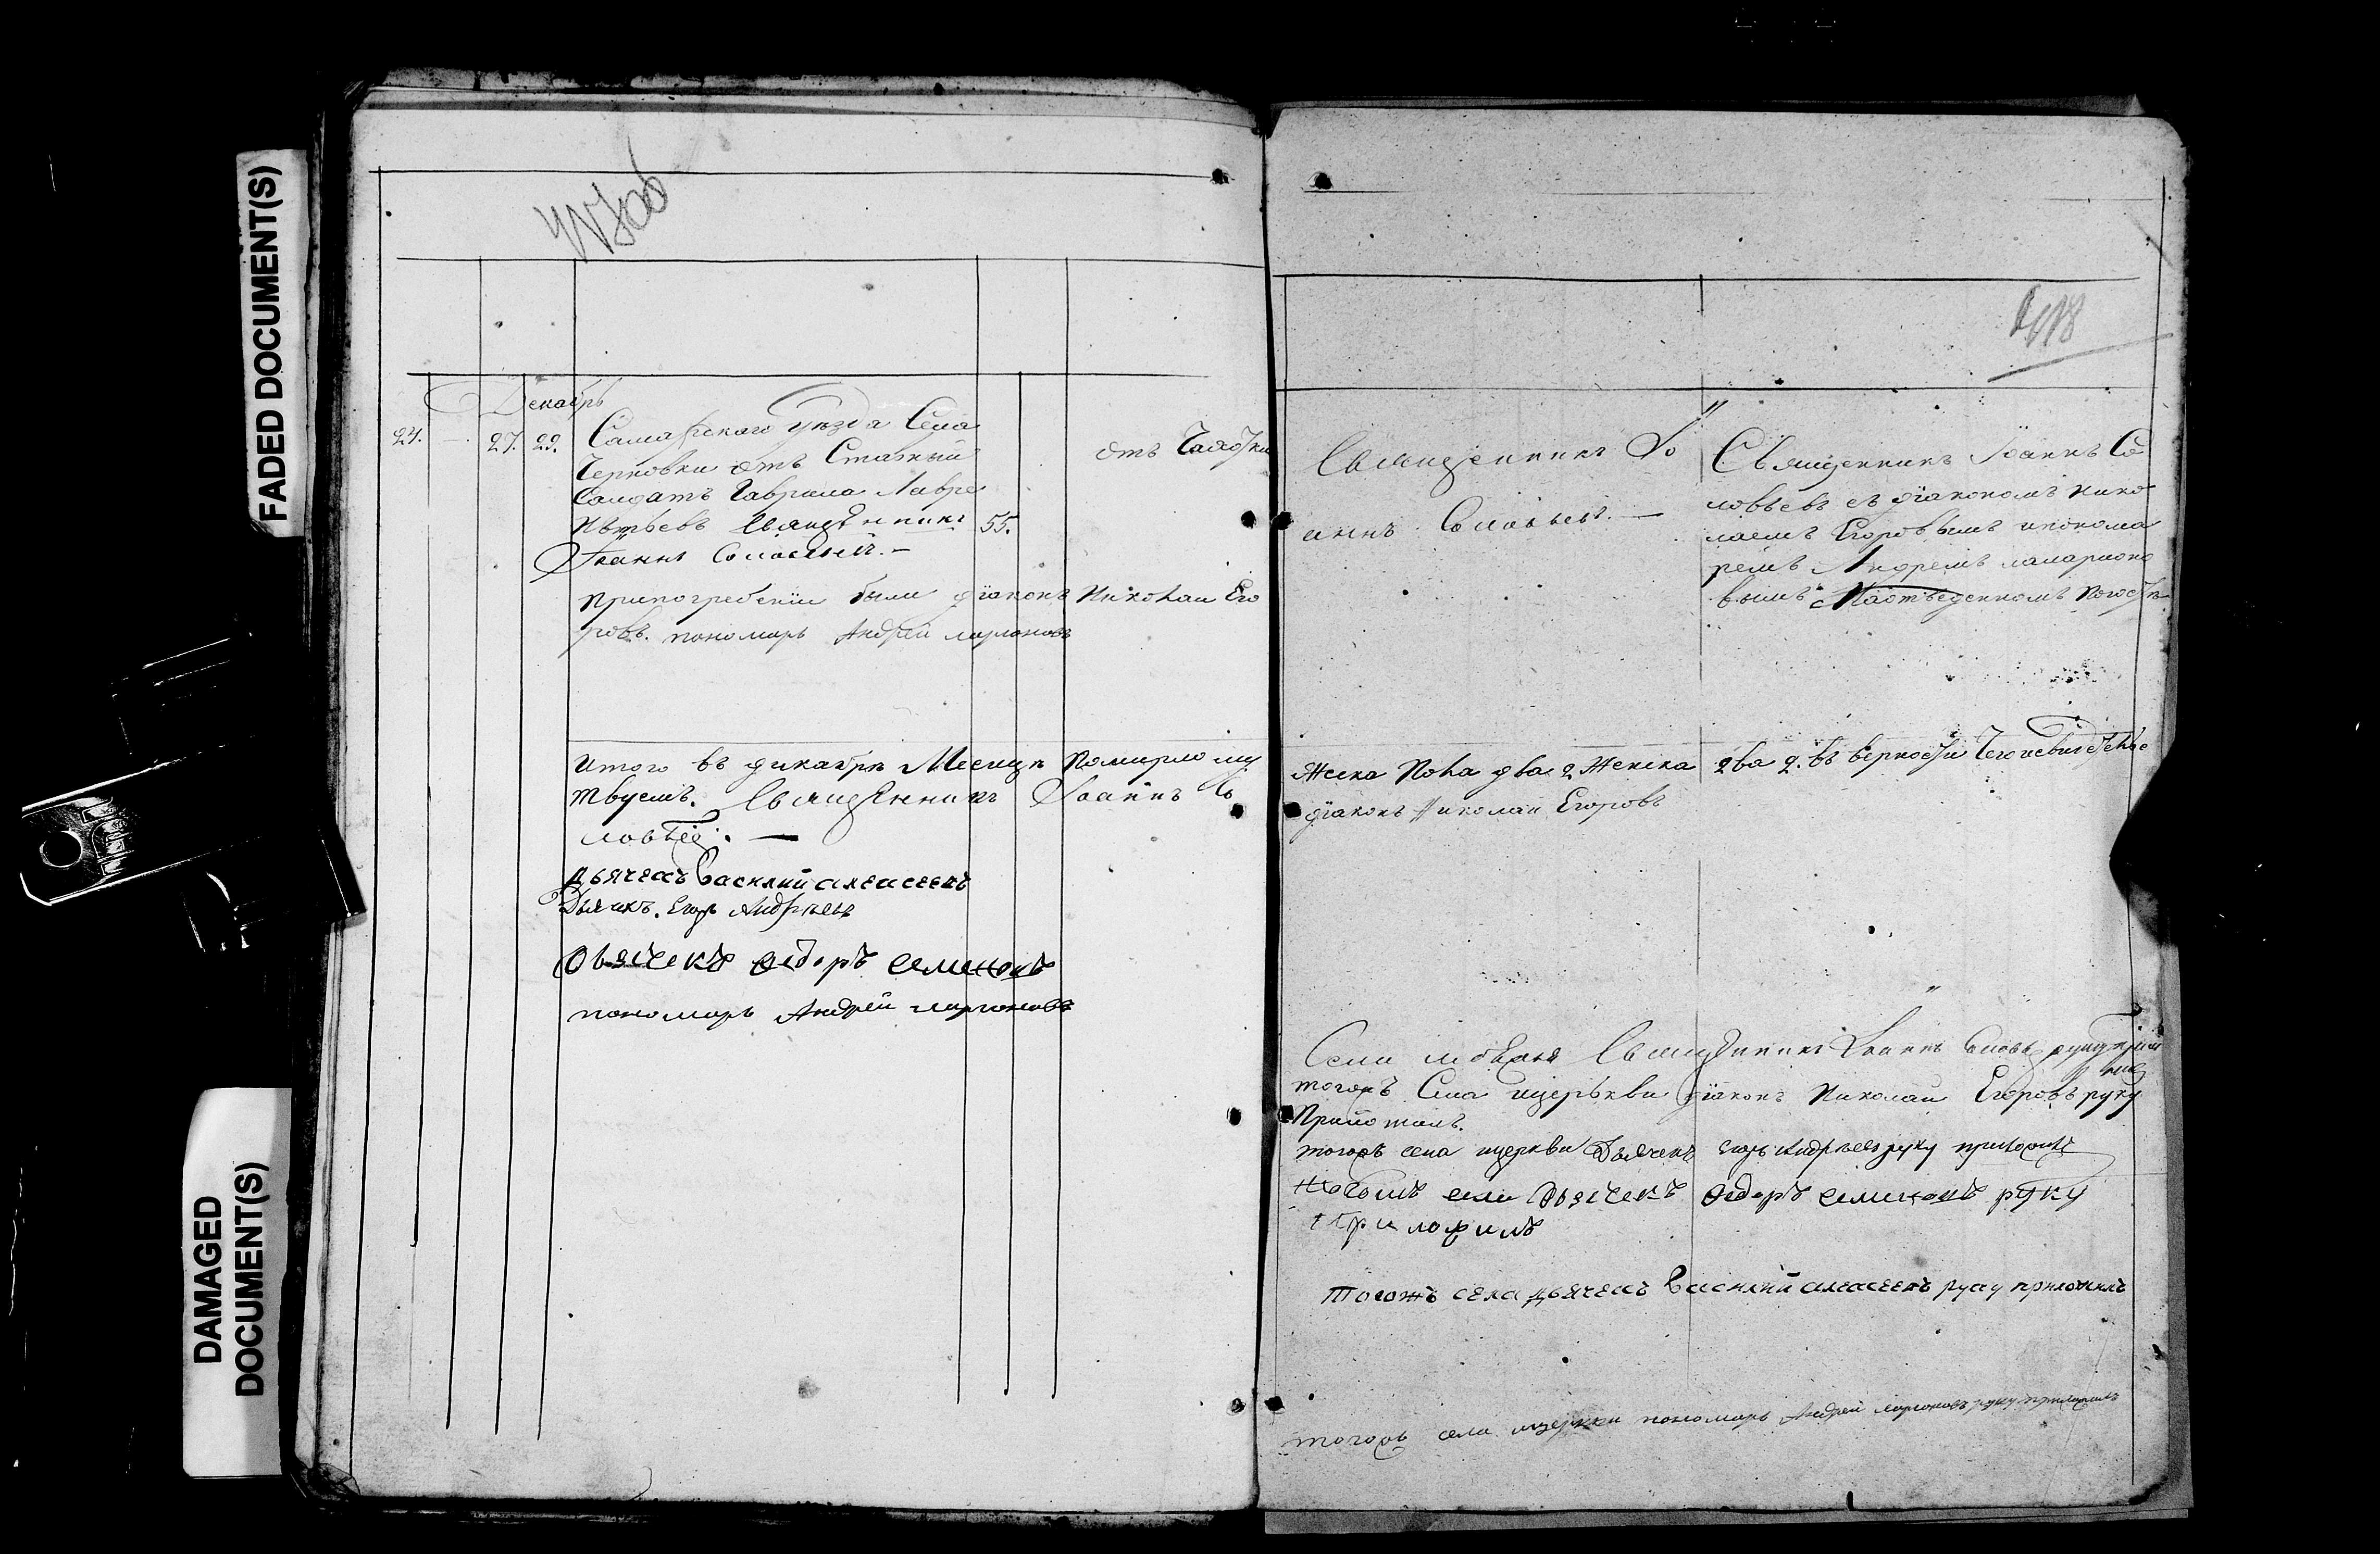 FADED DOCUMENT(S)
DAMAGED
DOCUMENT(S)
Декабрь
24. — 27. 29. Самарскаго уѣзда Села
Черновки отъ Ставный
Салдатъ Гаврила Лавре
нтьевъ Священникъ 55.
Іоаннъ Соловьевъ. —
от Чахотки
при погребеніи были діаконъ Николаи Его
ровъ. пономарь Андрей ларионовъ
Итого въ декабрѣ Месецѣ Померло му
твуемъ. Священникъ Іоаннъ Со
ловьев. —
Дьячекъ Василий алексеевъ
Дьячикъ. Егоръ Андрѣевъ
Дьячекъ Федоръ семеновъ
пономарь Андрей ларионовъ
Священникъ Іо
аннъ Соловьевъ. —
Священникъ Іоаннъ Со
ловьевъ съ діакономъ Нико
лаемъ Егоровымъ ипонома
ремъ Андреемъ лаларионо
вымъ Наотведенномъ погостѣ
жеска Пола два 2 Женска два 2. въ верности Чего исвидѣтельс
діаконъ Николаи Егоровъ
Священникъ Іоаннъ
тогожъ Села ицерькви діаконъ Николаи Егоровъ руку
Приложилъ.
тогожъ села ицеркви Дьячекъ Егоръ Андрѣевъ руку приложилъ
тогожъ села Дьячекъ Федоръ семеновъ руку
приложилъ
Тогожъ села дьячекъ Василий алексеевъ руку приложилъ
тогожъ села ицеркви пономарь Андрей ларионовъ руку приложилъ